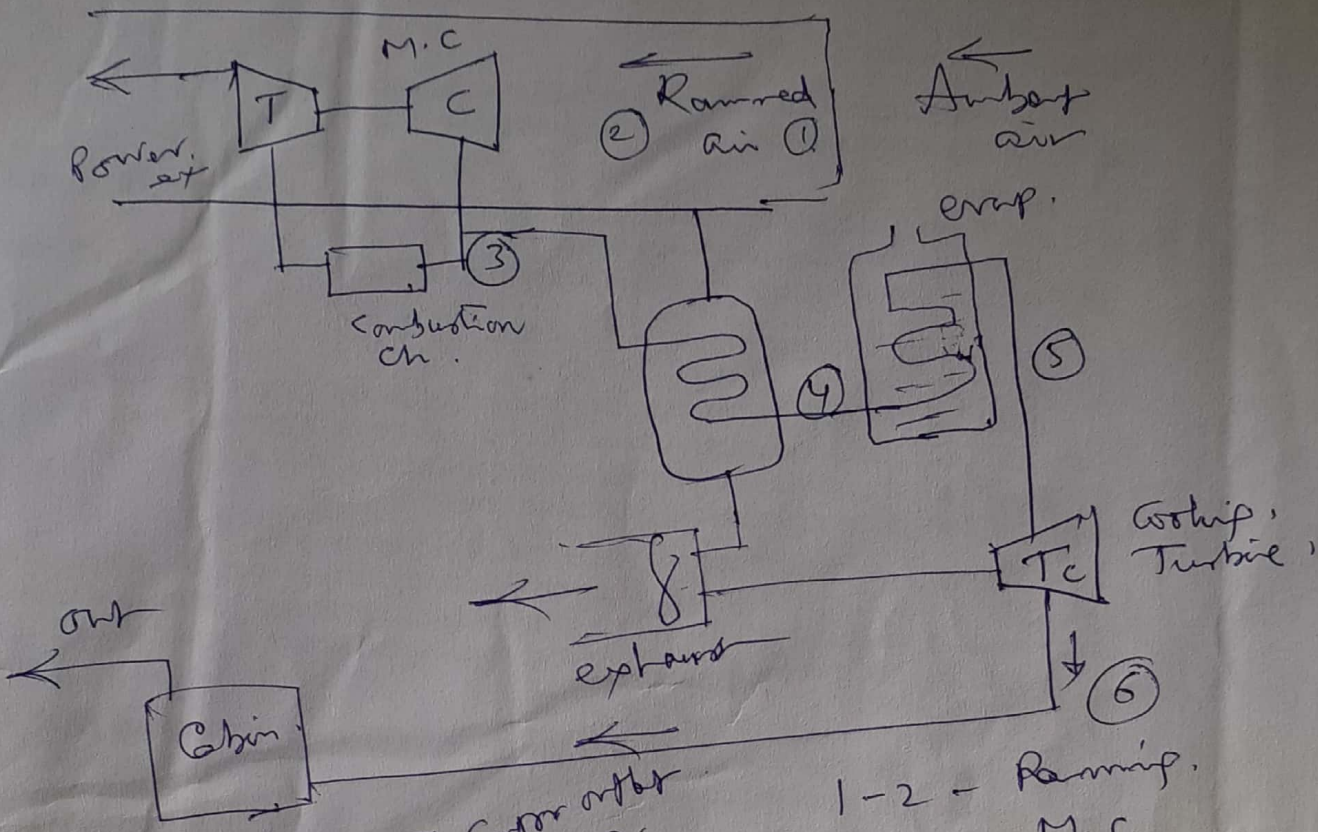 M.C
T
C
Rammed
air ①
②
Ambent
air
Power.
ex
evap.
③
Combustion
ch.
④
⑤
Cooling.
Turbine,
Tc
exhaust
out
⑥
Cabin
1-2 - Ramming.
M.C